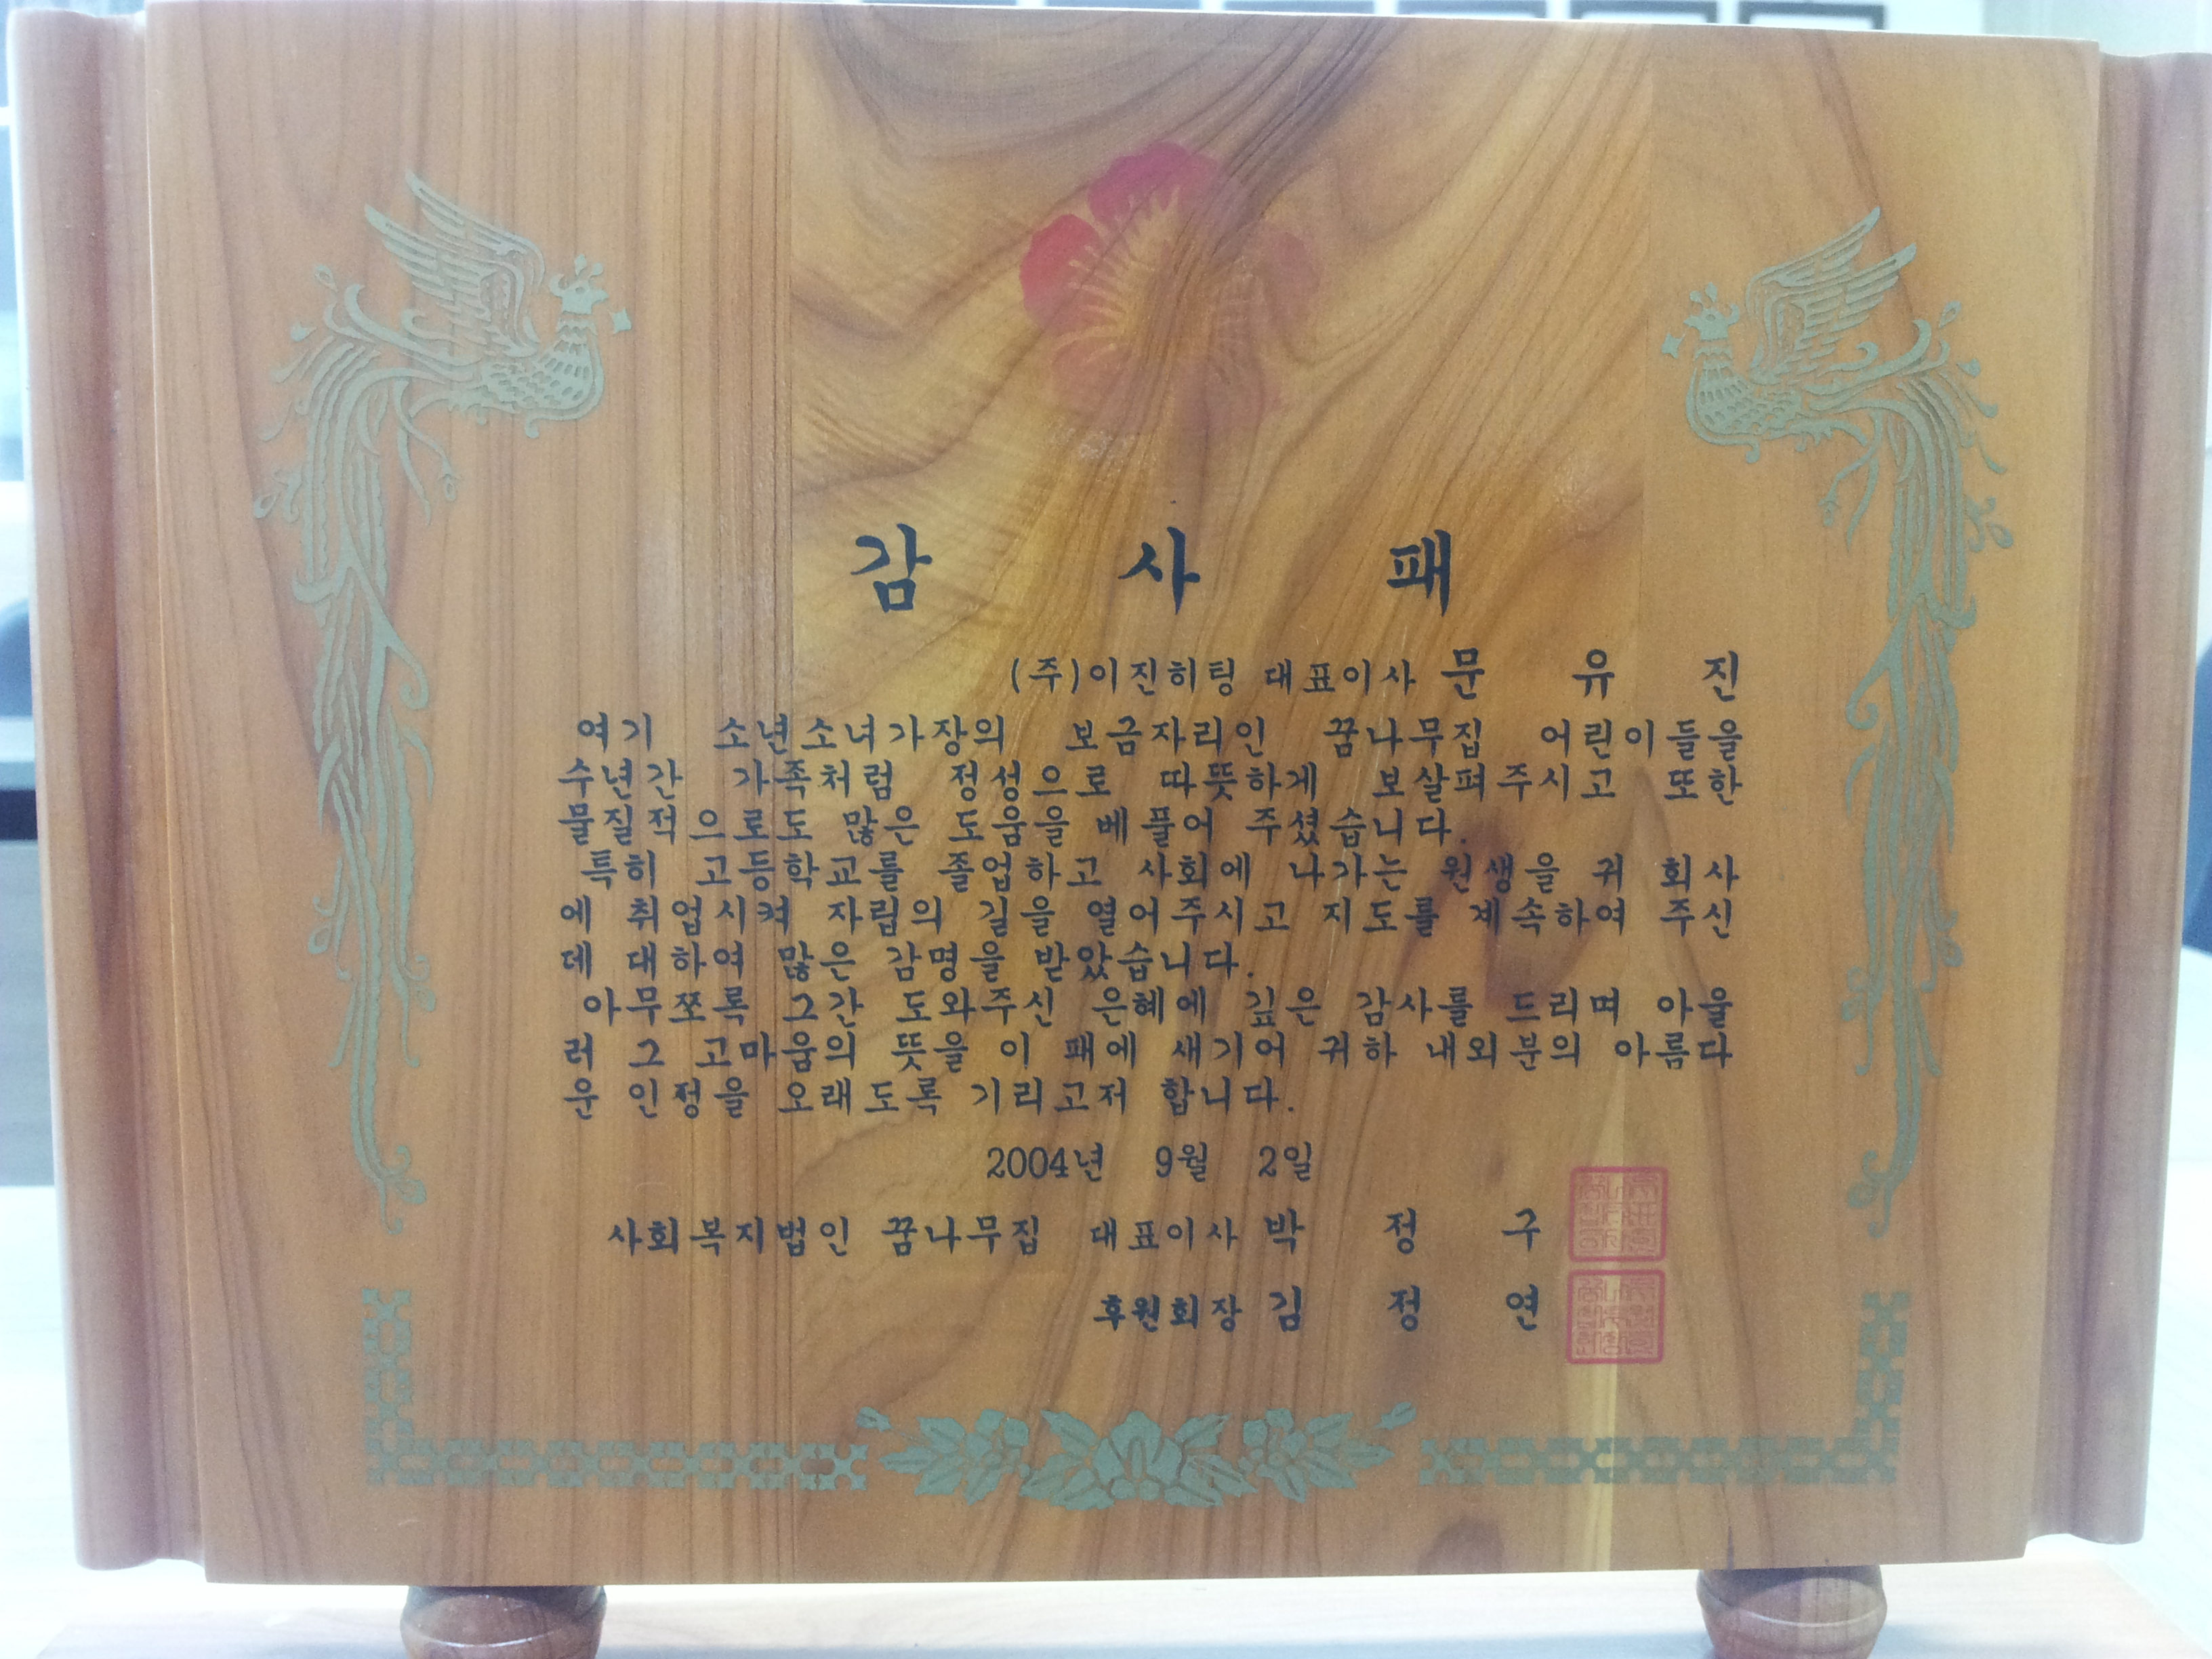 감 사 패
(주)이진히팅 대표이사 문 유 진
여기 소년소녀가장의 보금자리인 꿈나무집 어린이들을
수년간 가족처럼 정성으로 따뜻하게 보살펴주시고 또한
물질적으로도 많은 도움을 베풀어 주셨습니다.
특히 고등학교를 졸업하고 사회에 나가는 원생을 귀 회사
에 취업시켜 자립의 길을 열어주시고 지도를 계속하여 주신
데 대하여 많은 감명을 받았습니다.
아무쪼록 그간 도와주신 은혜에 깊은 감사를 드리며 아울
러 그 고마움의 뜻을 이 패에 새기어 귀하 내외분의 아름다
운 인정을 오래도록 기리고저 합니다.
2004년 9월 2일
사회복지법인 꿈나무집 대표이사 박 정 구
후원회장 김 정 연